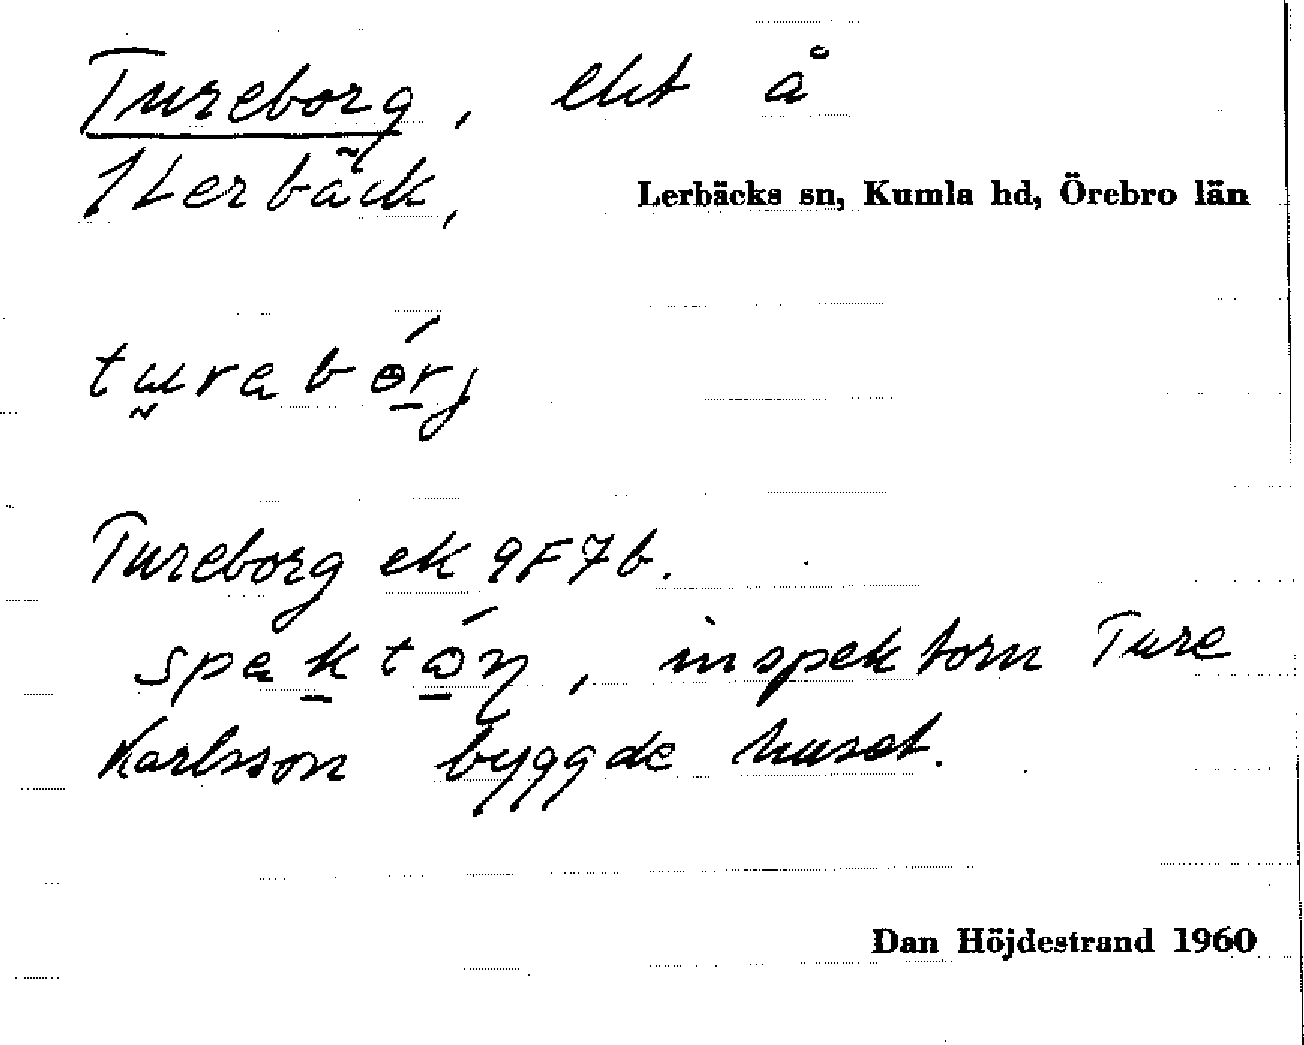 Tureborg, eht å
1 Lerbäck, Lerbäcks sn, Kumla hd, Örebro län
turabórj
Tureborg ek 9F7b.
spektón, inspektorn Ture
Karlsson byggde huset.
Dan Höjdestrand 1960